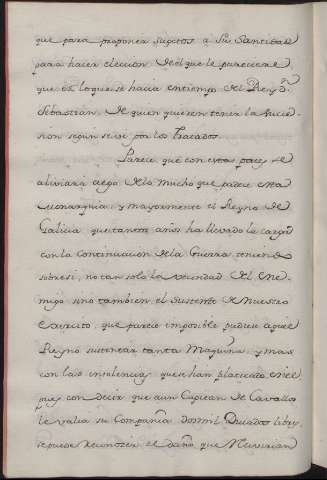 que para proponer sugetos a Su Santidad
para hacer eleccion del que le pareciere
que es lo que se hacia en tiempo del Rey Dn
Sebastian, de quien quieren tener la succe-
sion segun se ve por los tratados.
Parece que con estas pazes se
aliviará algo de lo mucho que padece esta
Monarquia, y mayormente el Reyno de
Galicia que tantos años ha llevado la carga
con la continuacion de la Guerra teniendo
sobre si, no tan solo la vecindad del ene-
migo sino tambien el sustento de nuestro
exercito, que parecio imposible pudiese aquel
Reyno sustentar tanta Maquina, y mas
con las insolencias que se han platicado en el
pues con decir que a un Capitan de Cavallos
le valia su Compañia dos mil Ducados libres
se puede reconocer el daño que